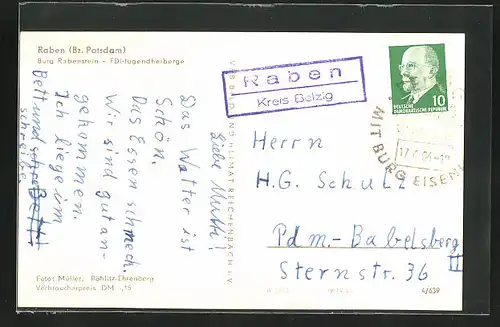 Raben (Bz. Potsdam)
Burg Rabenstein – FDJ-Jugendherberge
Liebe Mutti!
Das Wetter ist
Schön.
Das Essen schmeck.
Wir sind gut an-
gekommen.
Ich liege im
Bett und
schreibe.
Foto: Müller, Böhlitz-Ehrenberg
Verbraucherpreis DM -,15
VEB BILD UND HEIMAT REICHENBACH i. V.
Raben
Kreis Belzig
10
DEUTSCHE
DEMOKRATISCHE REPUBLIK
MIT BURG EISEN
Herrn
H.G. Schulz
Pdm.-Babelsberg
II
Sternstr. 36
4/639